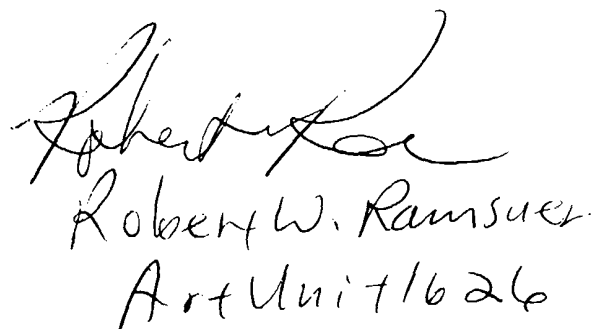 Robert
Robert W. Ramsuer
Art Unit 1626